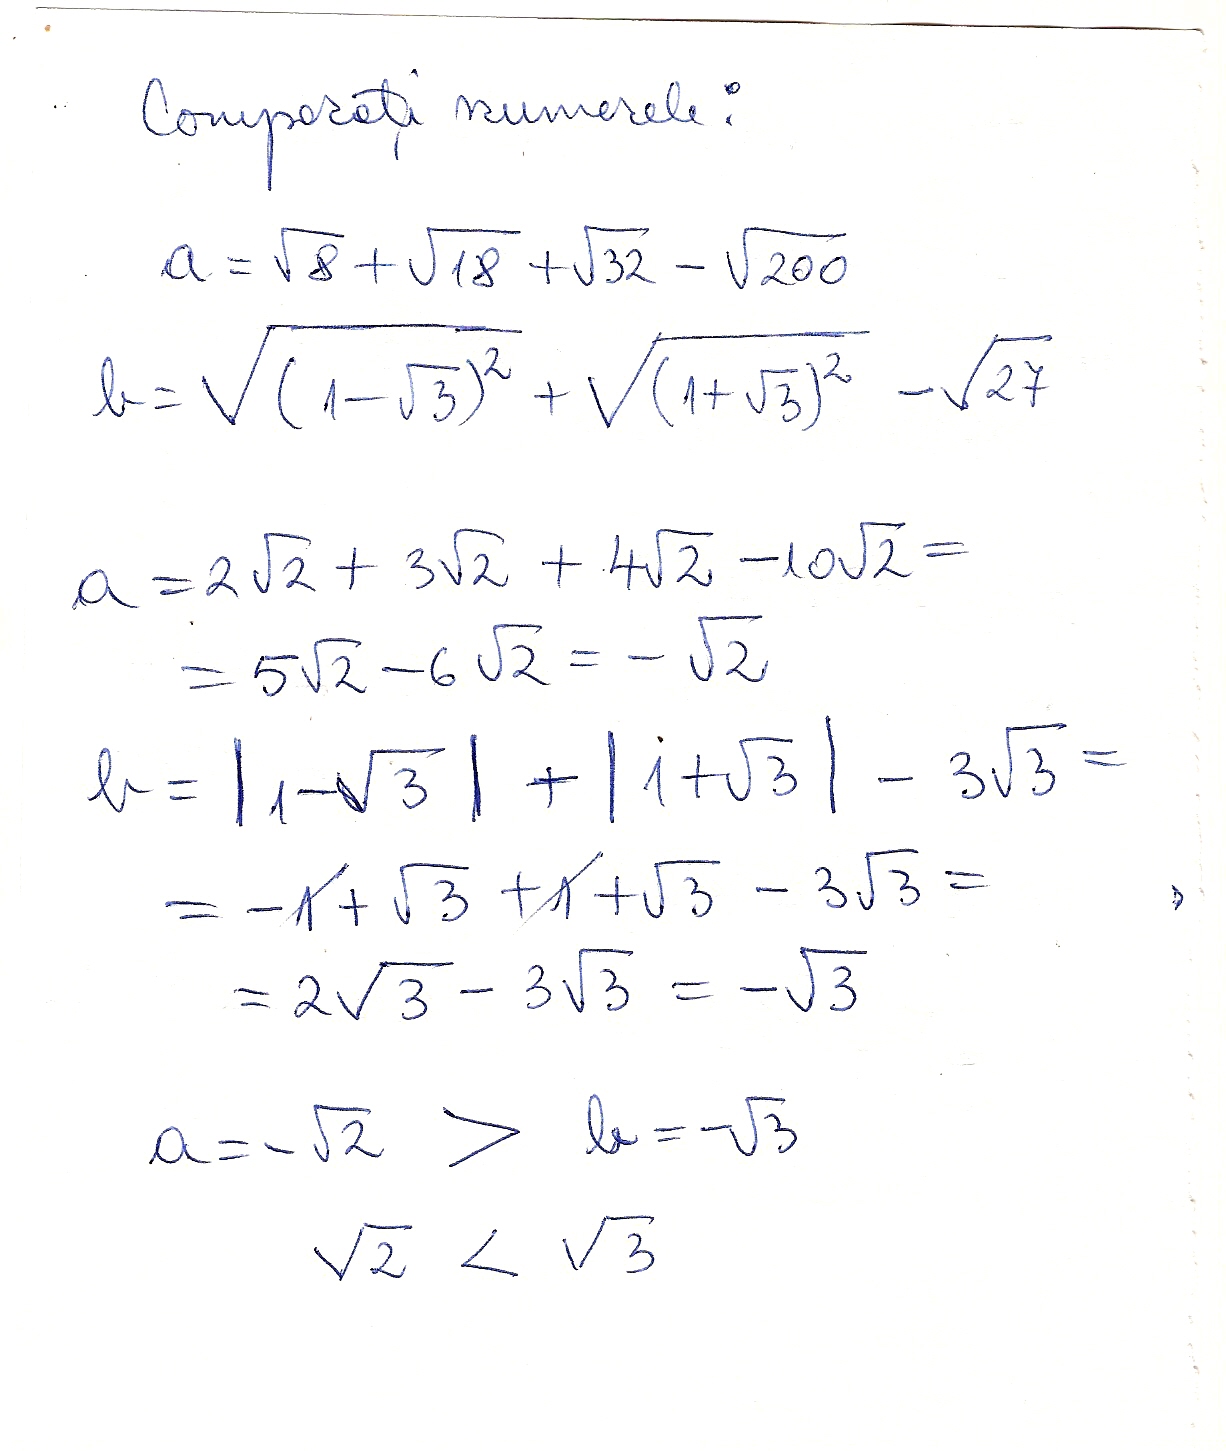 Comparați numerele:
a = √8 + √18 + √32 − √200
b = √(1−√3)² + √(1+√3)² − √27
a = 2√2 + 3√2 + 4√2 − 10√2 =
= 5√2 − 6√2 = − √2
b = |1−√3| + |1+√3| − 3√3 =
= −1 + √3 + 1 + √3 − 3√3 =
= 2√3 − 3√3 = −√3
a = −√2 > b = −√3
√2 < √3